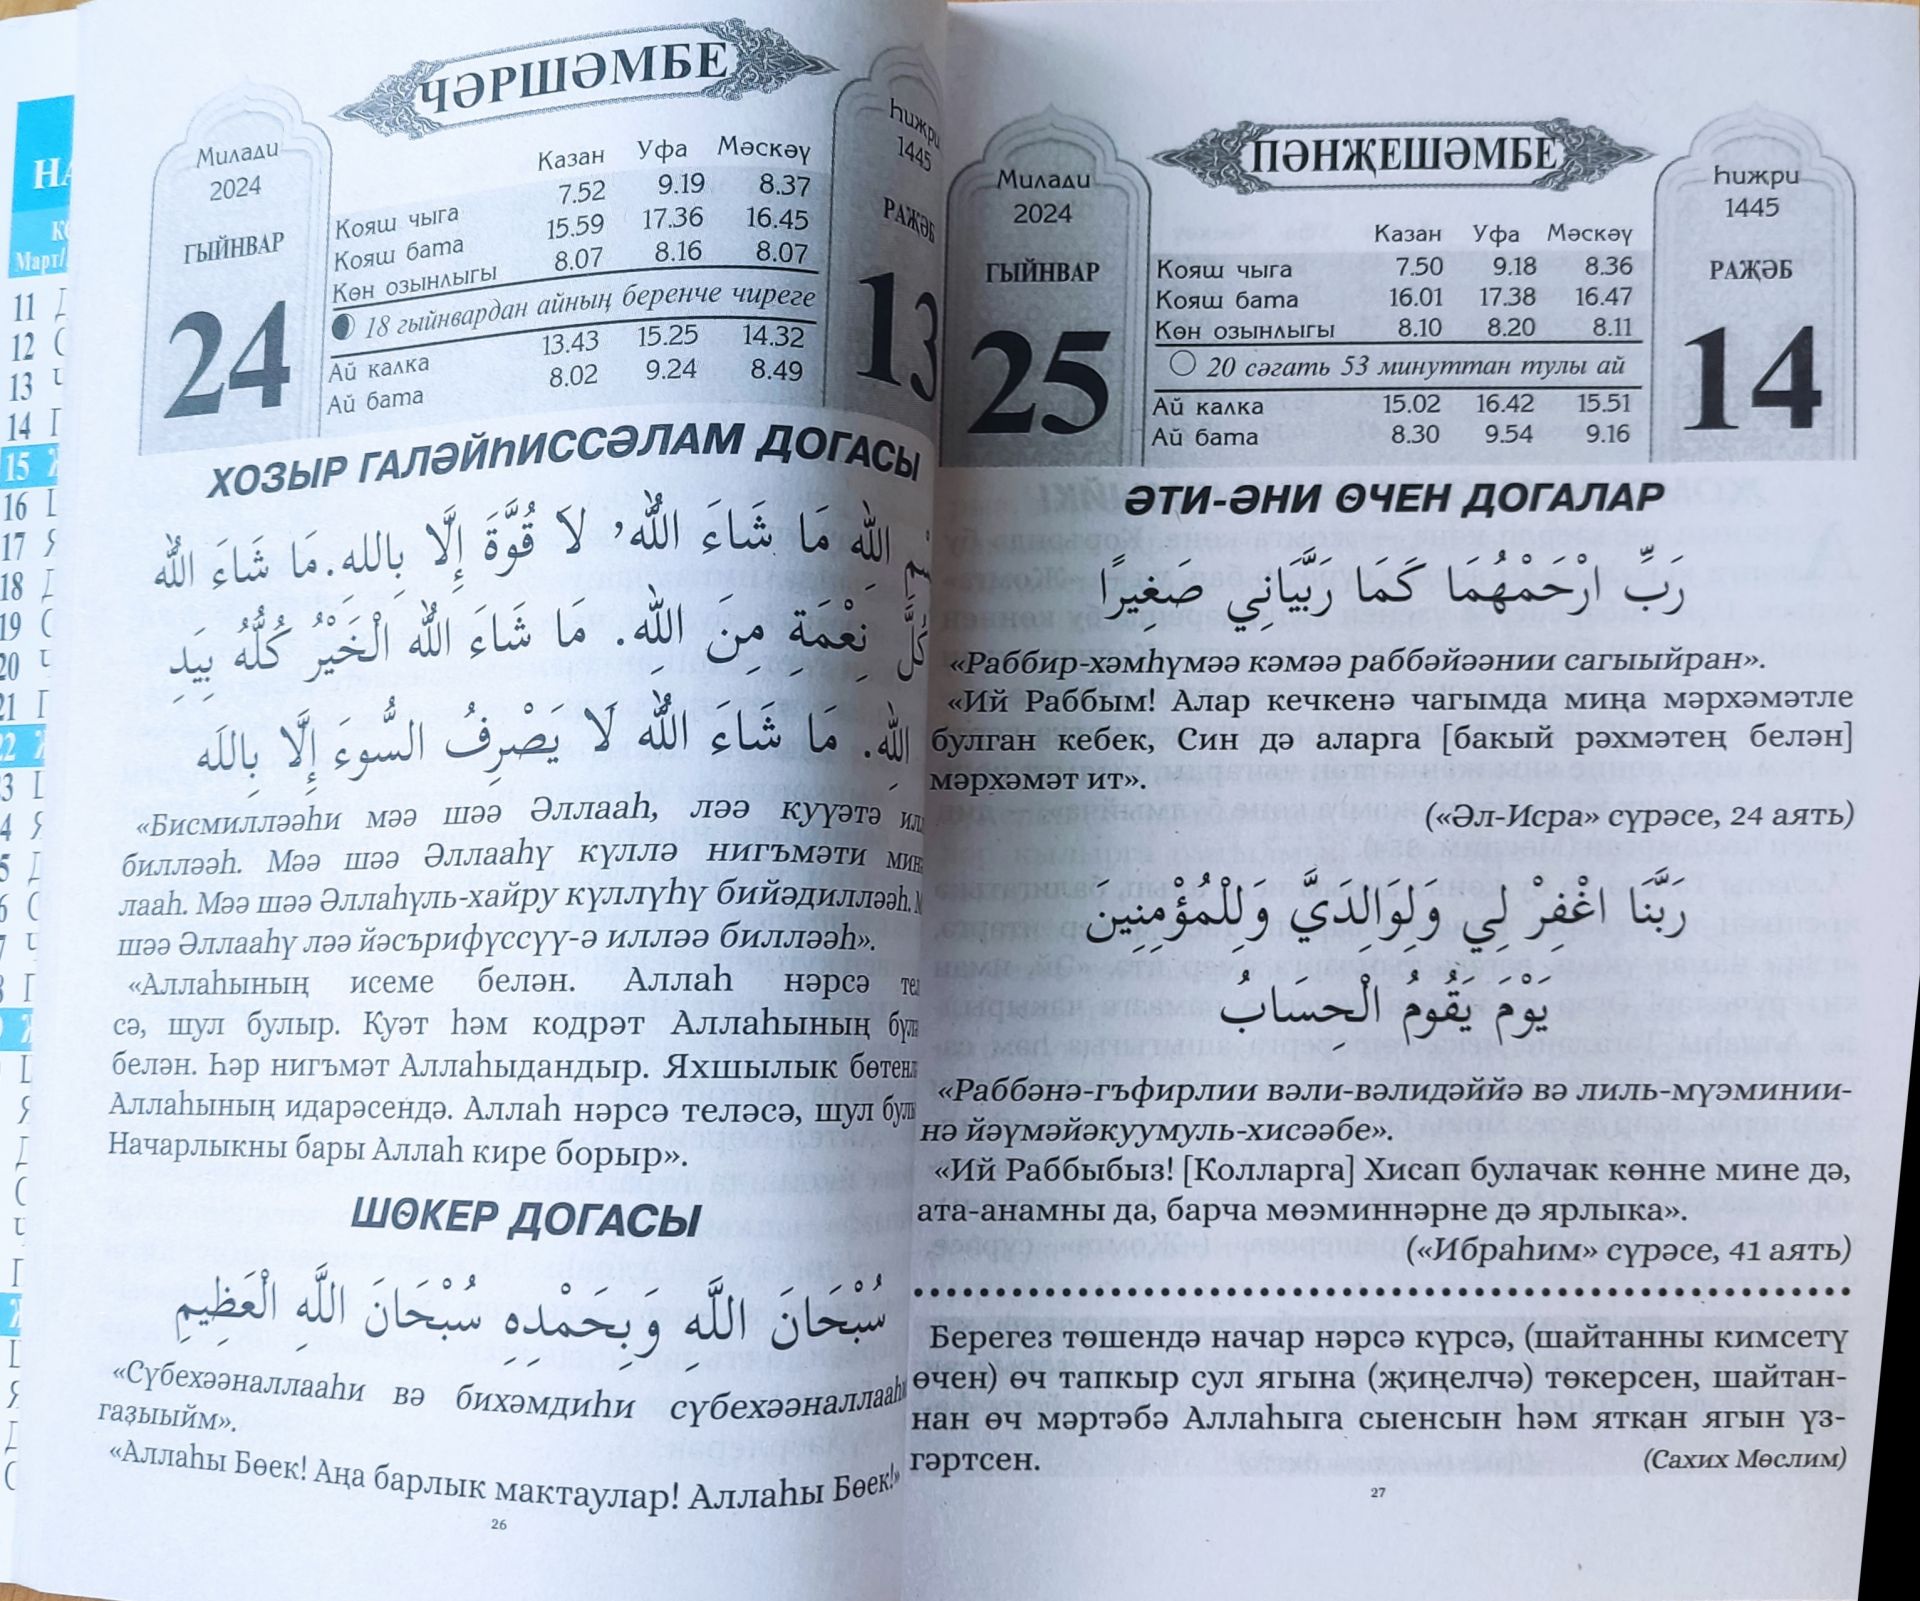 НА
Март/
11
12
13
14
15
16
17
18
19
20
21
22
ЧӘРШӘМБЕ
Милади
2024
ГЫЙНВАР
24
Казан Уфа Мәскәү
Кояш чыга 7.52 9.19 8.37
Кояш бата 15.59 17.36 16.45
Көн озынлыгы 8.07 8.16 8.07
18 гыйнвардан айның беренче чиреге
Ай калка 13.43 15.25 14.32
Ай бата 8.02 9.24 8.49
Һижри
1445
РАҖӘБ
13
ХОЗЫР ГАЛӘЙҺИССӘЛАМ ДОГАСЫ
اللهِ مَا شَاءَ اللهُ، لاَ قُوَّةَ إِلَّا بِاللهِ. مَا شَاءَ اللهُ
كُلَّ نِعْمَةٍ مِنَ اللهِ. مَا شَاءَ اللهُ الْخَيْرُ كُلُّهُ بِيَدِ
اللهِ. مَا شَاءَ اللهُ لَا يَصْرِفُ السُّوءَ إِلَّا بِاللَه
«Бисмилләәһи мәә шәә Әллааһ, ләә кууәтә
билләәһ. Мәә шәә Әллааһү күллә нигъмәти
лааһ. Мәә шәә Әллаһүль-хайру күллүһү бийәдилләәһ.
шәә Әллааһү ләә йәсърифүссүү-ә илләә билләәһ».
«Аллаһының исеме белән. Аллаһ нәрсә
сә, шул булыр. Куәт һәм кодрәт Аллаһының
белән. Һәр нигъмәт Аллаһыдандыр. Яхшылык
Аллаһының идарәсендә. Аллаһ нәрсә теләсә, шул
Начарлыкны бары Аллаһ кире борыр».
ШӨКЕР ДОГАСЫ
سُبْحَانَ اللَّهِ وَبِحَمْدِهِ سُبْحَانَ اللَّهِ الْعَظِيمِ
«Сүбехәәналлааһи вә бихәмдиһи сүбехәәналлааһи
газыыйм».
«Аллаһы Бөек! Аңа барлык мактаулар! Аллаһы Бөек!»
26
ПӘНҖЕШӘМБЕ
Милади
2024
ГЫЙНВАР
25
Казан Уфа Мәскәү
Кояш чыга 7.50 9.18 8.36
Кояш бата 16.01 17.38 16.47
Көн озынлыгы 8.10 8.20 8.11
20 сәгать 53 минуттан тулы ай
Ай калка 15.02 16.42 15.51
Ай бата 8.30 9.54 9.16
Һижри
1445
РАҖӘБ
14
ӘТИ-ӘНИ ӨЧЕН ДОГАЛАР
رَبِّ ارْحَمْهُمَا كَمَا رَبَّيَانِي صَغِيرًا
«Раббир-хәмһүмәә кәмәә раббәйәәнии сагыыйран».
«Ий Раббым! Алар кечкенә чагымда миңа мәрхәмәтле
булган кебек, Син дә аларга [бакый рәхмәтең белән]
мәрхәмәт ит».
(«Әл-Исра» сүрәсе, 24 аять)
رَبَّنَا اغْفِرْ لِي وَلِوالِدَيَّ وَلِلْمُؤْمِنِينَ
يَوْمَ يَقُومُ الْحِسَابُ
«Раббәнә-гъфирлии вәли-вәлидәййә вә лиль-мүэминии-
нә йәүмәйәкуумуль-хисәәбе».
«Ий Раббыбыз! [Колларга] Хисап булачак көнне мине дә,
ата-анамны да, барча мөэминнәрне дә ярлыка».
(«Ибраһим» сүрәсе, 41 аять)
Берегез төшендә начар нәрсә күрсә, (шайтанны кимсетү
өчен) өч тапкыр сул ягына (җиңелчә) төкерсен, шайтан-
нан өч мәртәбә Аллаһыга сыенсын һәм яткан ягын үз-
гәртсен.
(Сахих Мөслим)
27